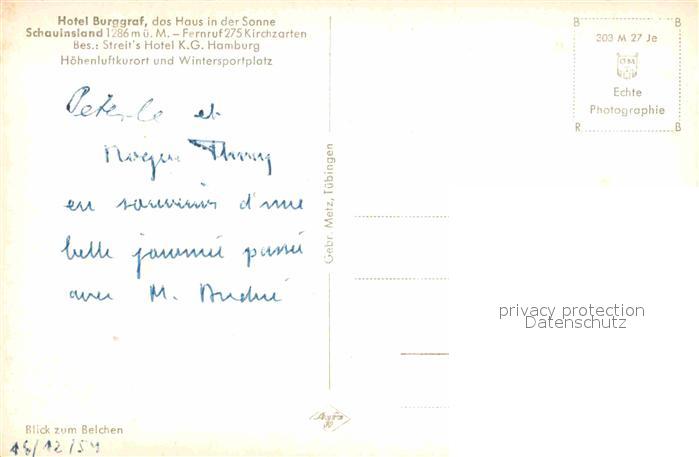 Hotel Burggraf, das Haus in der Sonne
Schauinsland 1286 m ü. M. – Fernruf 275 Kirchzarten
Bes.: Streit's Hotel K.G. Hamburg
Höhenluftkurort und Wintersportplatz
et
en souvenir d'une
belle journée passée
avec M. André
Gebr. Metz, Tübingen
B B
303 M 27 Je
GM
Echte
Photographie
R B
privacy protection
Datenschutz
Blick zum Belchen